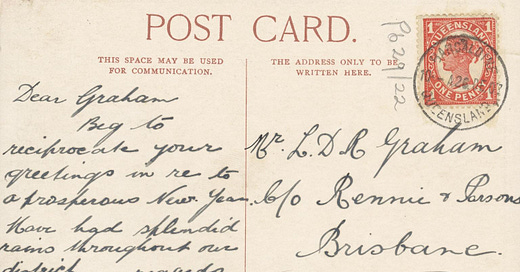 POST CARD.
THIS SPACE MAY BE USED
FOR COMMUNICATION.
THE ADDRESS ONLY TO BE
WRITTEN HERE.
Pb 29/22
1 QUEENSLAND 1
ONE PENNY
QUEENSLAND
Dear Graham
Beg to
reciprocate your
greetings in re to
a prosperous New Year.
Have had splendid
rains throughout our
district regards
Mr. L. D R Graham
C/o Rennie & Parsons
Brisbane.